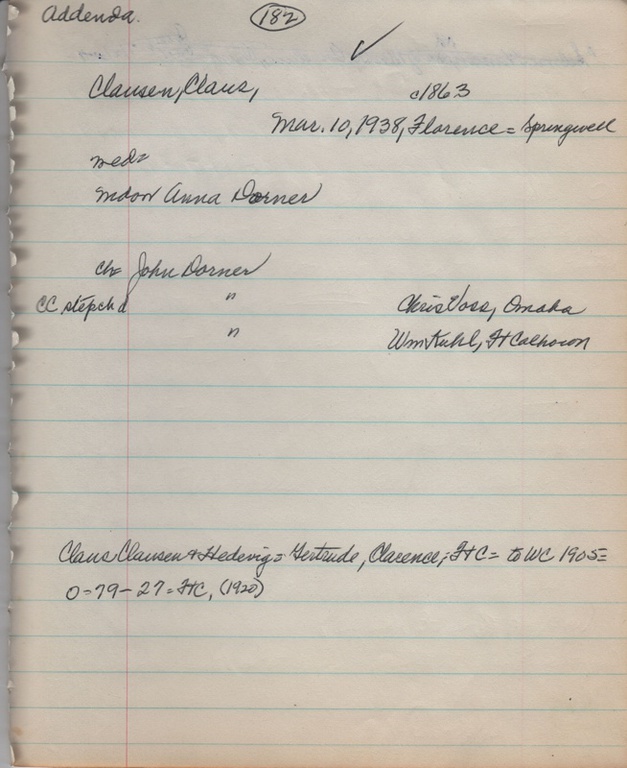 Addenda. 182
Clausen, Claus, c1863
Mar. 10, 1938, Florence = Springwell
med=
Mdow Anna Dorner
ch= John Dorner
CC stepchd " Chris Voss, Omaha
" Wm Kuhl, Ft Calhoun
Claus Clausen & Hedevig = Gertrude, Clarence; FtC = to WC 1905 =
0=79-27=FtC, (1920)